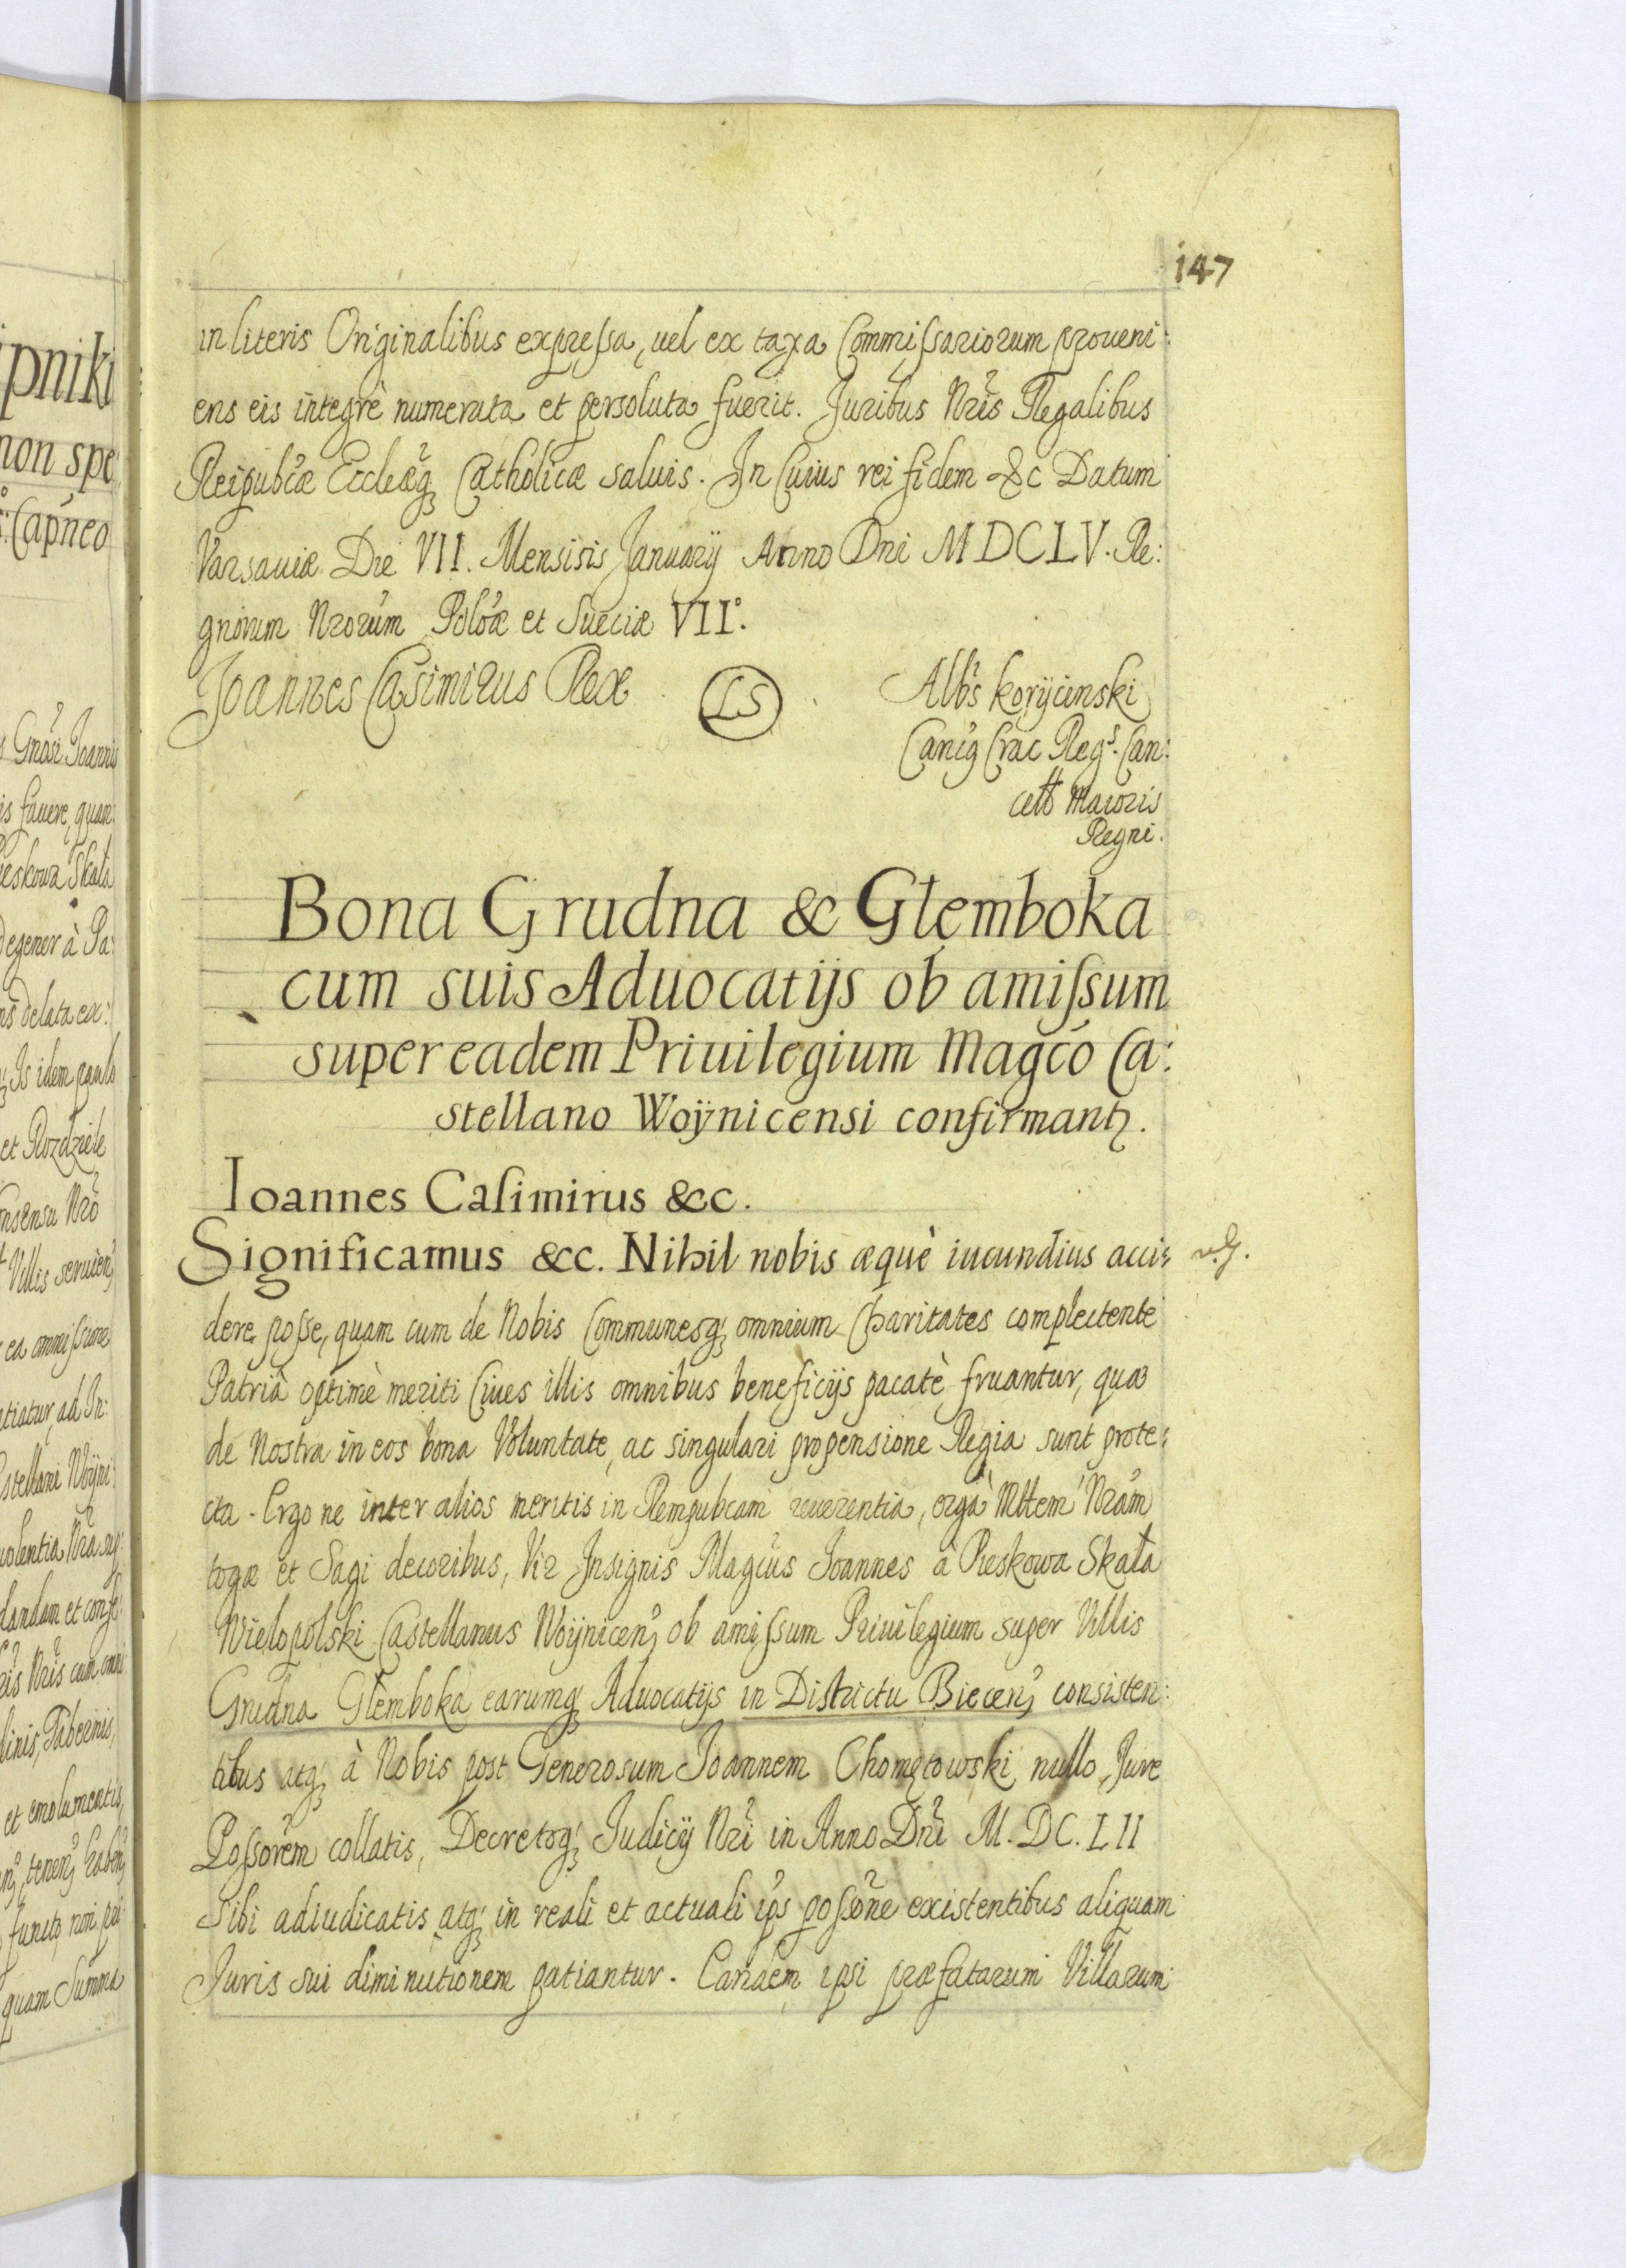 147
in literis Originalibus expreſsa, uel ex taxa Commiſsariorum proueni:
ens eis integrè numerata et persoluta fuerit. Juribus Nris Regalibus
Reipubcæ Eccleæq Catholicæ saluis. In Cuius rei fidem &c Datum
Varsauiæ Die VII. Mensisis Januarij Anno Dni MDCLV. Re:
gnorum Nrorum Poloæ et Sueciæ VII°.
Joannes Casimirus Rex LS Albs Korÿcinski
Canc9 Crac Regs. Can:
cell Maioris
Regni.
Bona Grudna & Głemboka
cum suis Aduocatijs ob amiſsum
super eadem Priuilegium Magco Ca:
stellano Woÿnicensi confirmant.
Ioannes Caſimirus &c.
Significamus &c. Nihil nobis æquè iucundius acci:
dere poſse, quam cum de Nobis Communesq omnium Charitates complectente
Patriâ optimè meriti Ciues illis omnibus beneficijs pacatè fruantur, quæ
de Nostra in eos bona Voluntate, ac singulari propensione Regia sunt prote:
cta. Ergo ne inter alios meritis in Rempubcam reuerentia, ergà Mttem Nram
togæ et Sagi decoribus, Vir Insignis Magcus Joannes à Pieskowa Skała
Wielopolski Castellanus Woÿnicen, ob amiſsum Priuilegium super Villis
Grudna Głemboka earumq Aduocatijs in Districtu Biecen, consisten:
tibus atq à Nobis post Generosum Joannem Chomętowski nullo Jure
Poſsorem collatis, Decretoq Judicij Nri in Anno Dni M.DC.LII
Sibi adiudicatis atq in reali et actuali ips poſsone existentibus aliquam
Juris sui diminutionem patiantur. Eardem ipsi præfatarum Villarum
ipniki
non spe
Capneo
Gnosi Joannis
is fauere, quan:
ieskowa Skała
Degener à Pa:
delata ex:
Is idem paulo
et Rozdziele
onsensu Nro
Villis seruien
ea omniſsione
atiatur, ad In:
stellani Woÿni:
uolentia Nra
dandam et
Nris cum omni
linis, Tabernis,
et emolumentis,
tenen, haben,
non
quam Summa